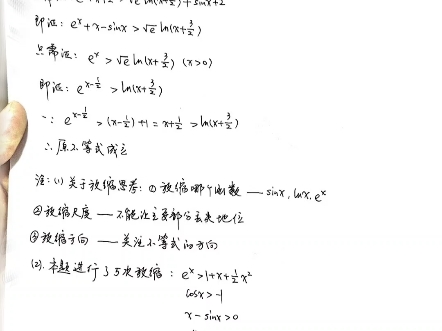 即证: e^x+x-sinx > √e ln(x+3/2)
只需证: e^x > √e ln(x+3/2) (x>0)
即证: e^{x-1/2} > ln(x+3/2)
∵ e^{x-1/2} > (x-1/2)+1 = x+1/2 > ln(x+3/2)
∴ 原不等式成立
注: (1) 关于放缩思考: ① 放缩哪个函数 — sinx, lnx, e^x
②放缩尺度 — 不能次主要部分丢失地位
③放缩方向 — 关注不等式的方向
(2). 本题进行了5次放缩: e^x>1+x+½x²
cosx>-1
x-sinx>0